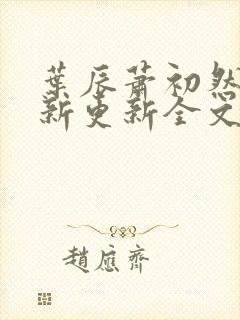 葉辰蕭初然
新更新全文
趙應齊